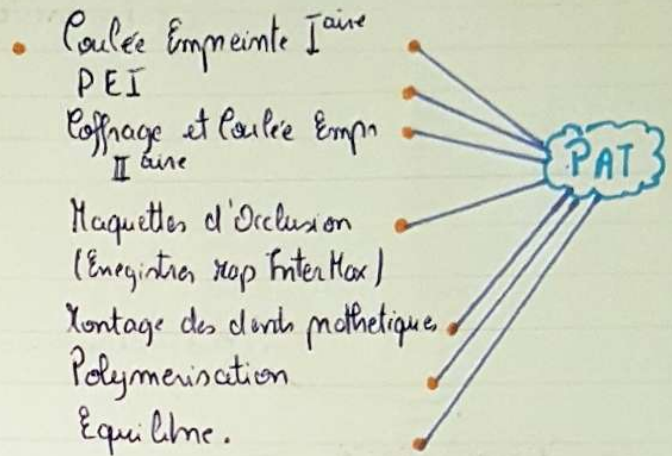 • Coulée Empreinte I aire
PEI
Coffrage et Coulée Empr
II aire
Maquettes d'Occlusion
(Enegistrer rap InterMax)
Montage des dents prothetiques
Polymerisation
Equilibre.
PAT